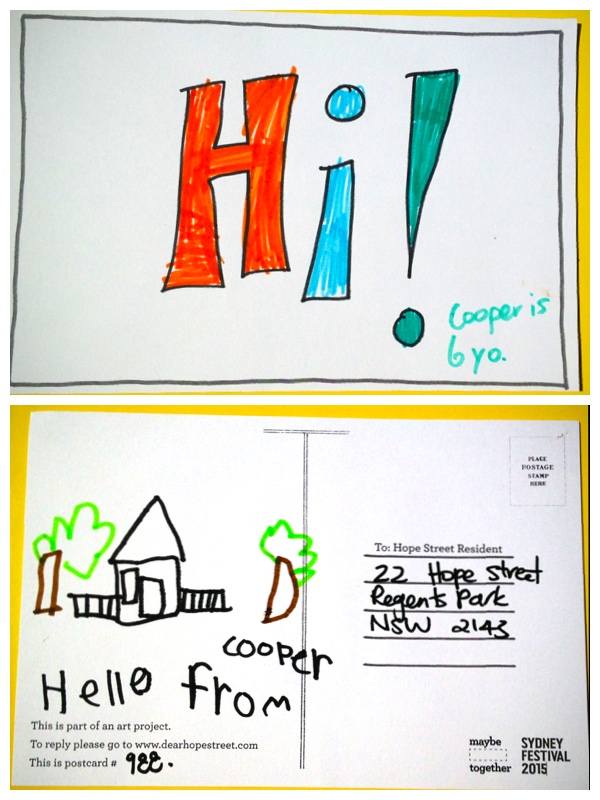 Hi!
Cooper is
6 yo.
PLACE
POSTAGE
STAMP
HERE
To: Hope Street Resident
22 Hope Street
Regents Park
NSW 2143
cooper
Hello from
This is part of an art project.
To reply please go to www.dearhopestreet.com
This is postcard # 988.
maybe
together
SYDNEY
FESTIVAL
2015